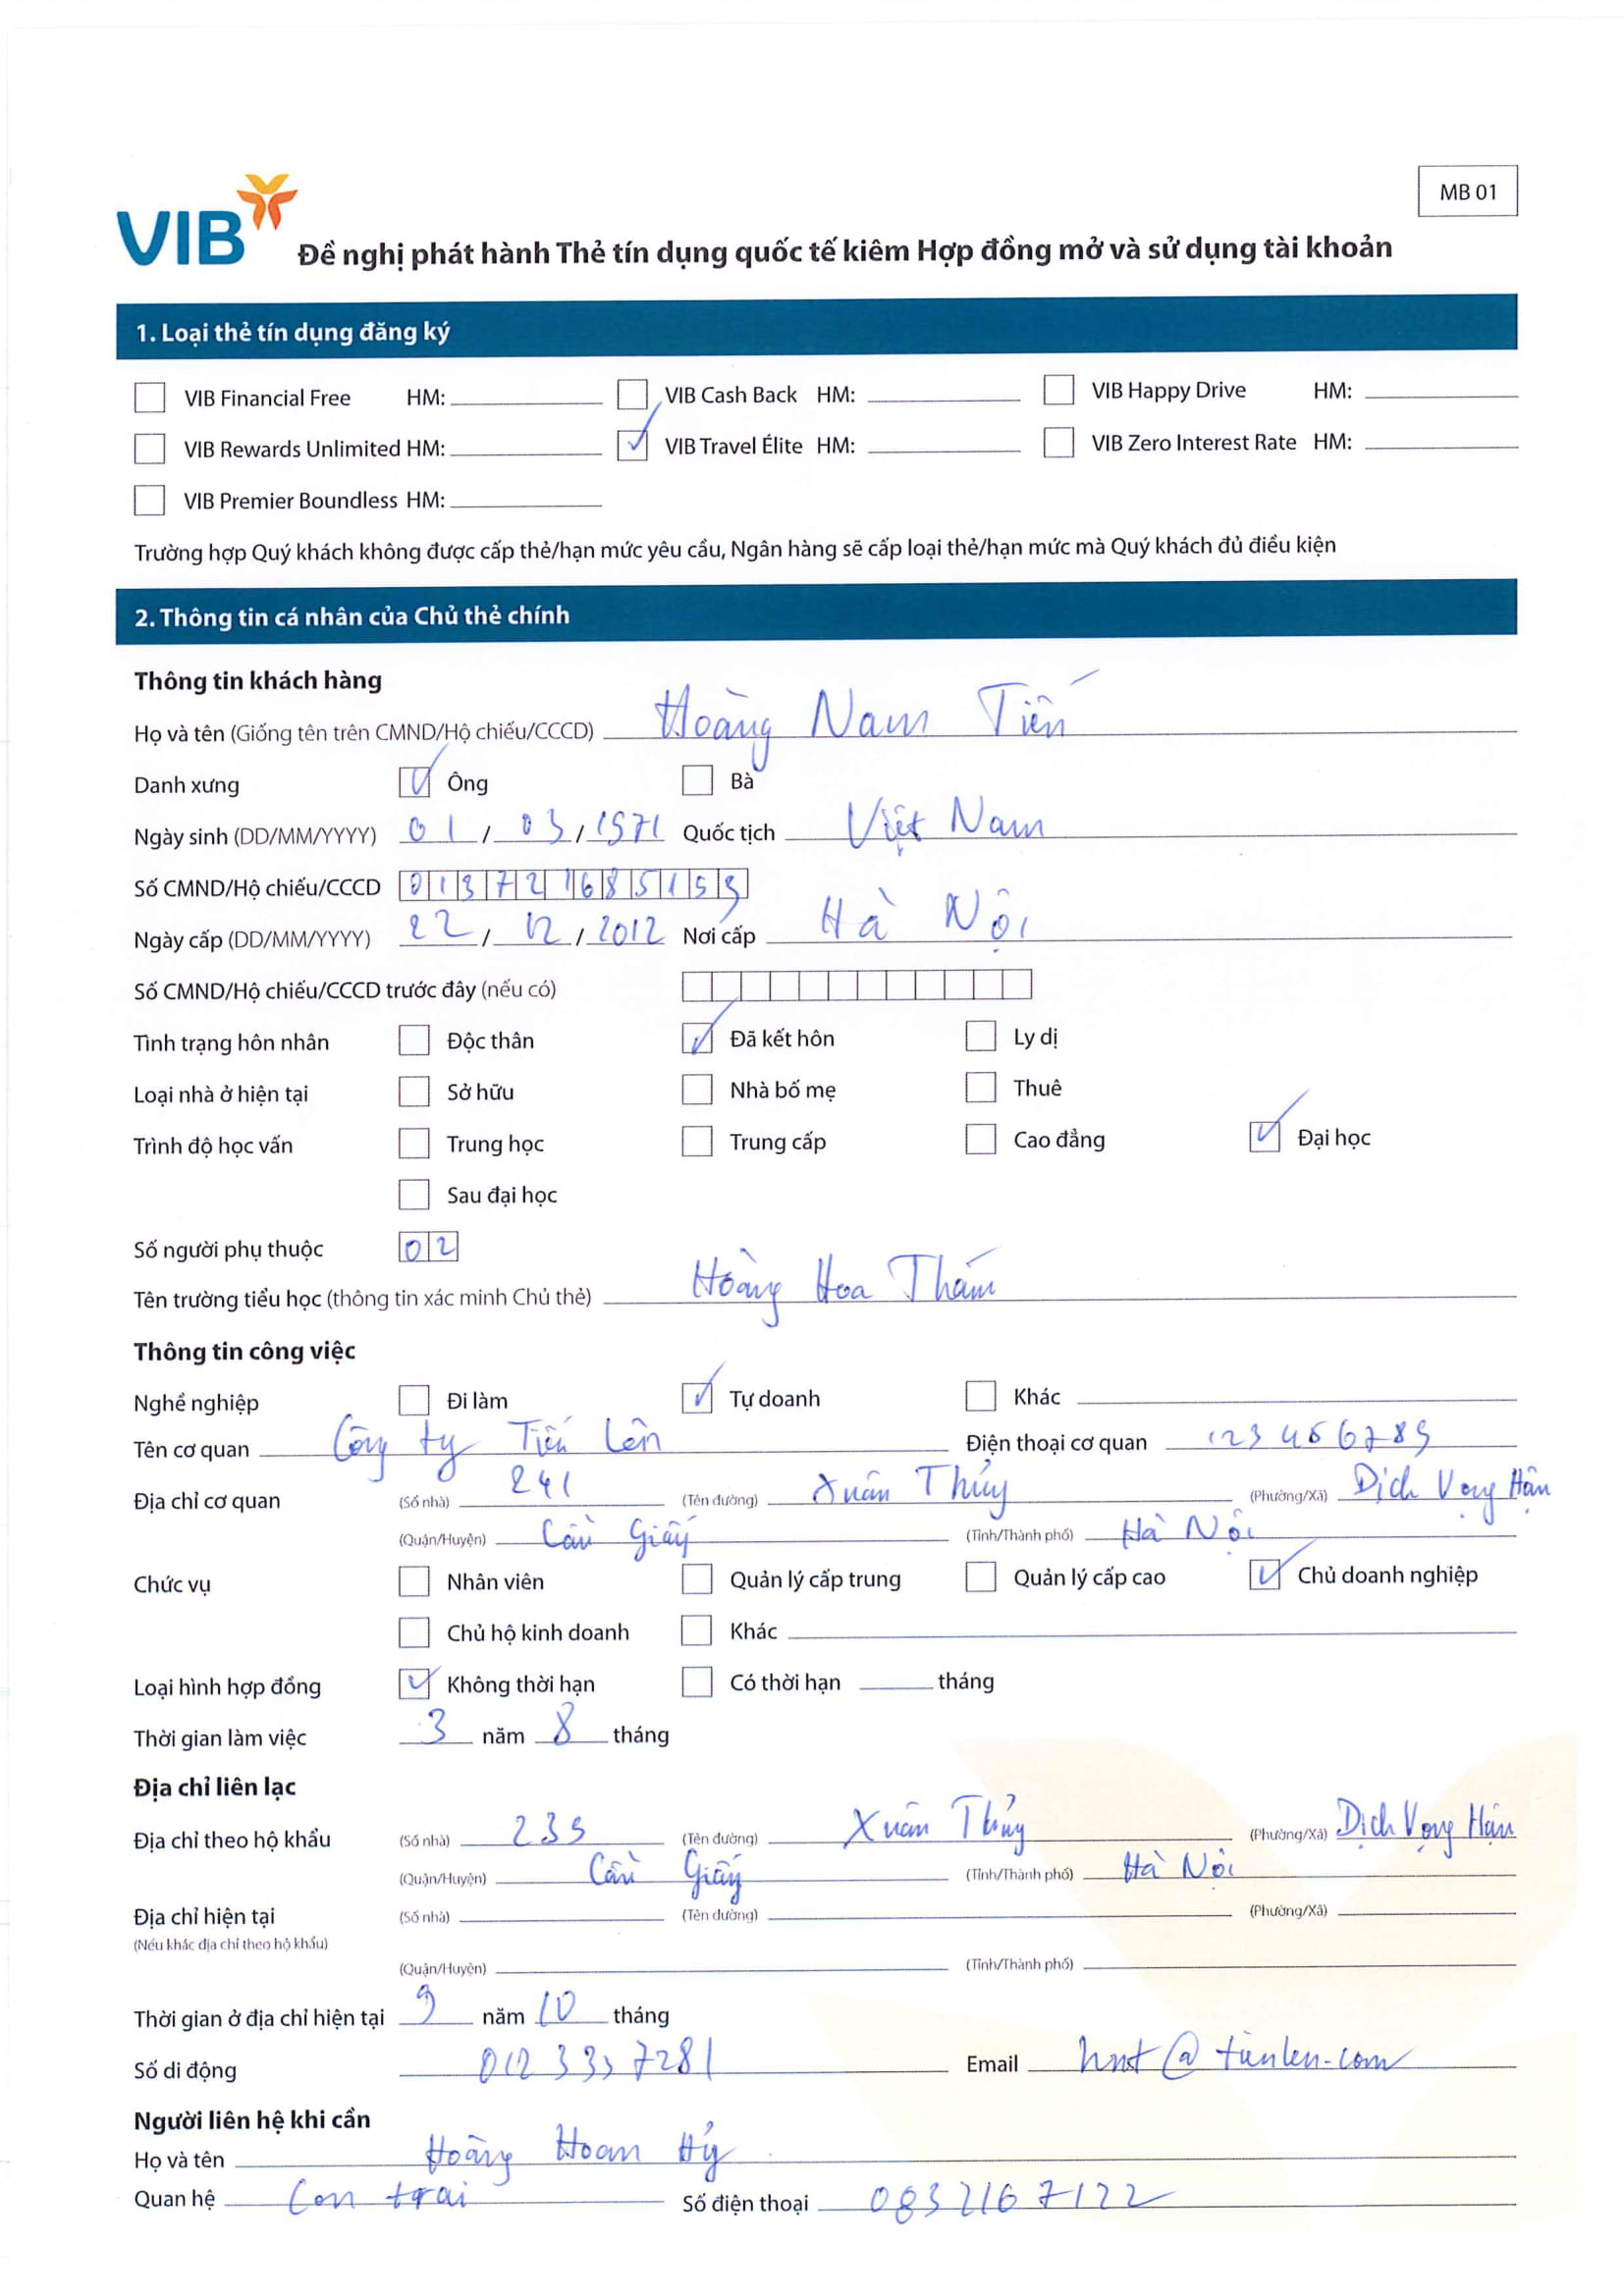 MB 01
VIB Đề nghị phát hành Thẻ tín dụng quốc tế kiêm Hợp đồng mở và sử dụng tài khoản
1. Loại thẻ tín dụng đăng ký
VIB Financial Free HM: VIB Cash Back HM: VIB Happy Drive HM:
VIB Rewards Unlimited HM: VIB Travel Élite HM: VIB Zero Interest Rate HM:
VIB Premier Boundless HM:
Trường hợp Quý khách không được cấp thẻ/hạn mức yêu cầu, Ngân hàng sẽ cấp loại thẻ/hạn mức mà Quý khách đủ điều kiện
2. Thông tin cá nhân của Chủ thẻ chính
Thông tin khách hàng
Họ và tên (Giống tên trên CMND/Hộ chiếu/CCCD) Hoàng Nam Tiến
Danh xưng Ông Bà
Ngày sinh (DD/MM/YYYY) 01 / 03 / 1971 Quốc tịch Việt Nam
Số CMND/Hộ chiếu/CCCD 013721685153
Ngày cấp (DD/MM/YYYY) 22 / 12 / 2012 Nơi cấp Hà Nội
Số CMND/Hộ chiếu/CCCD trước đây (nếu có)
Tình trạng hôn nhân Độc thân Đã kết hôn Ly dị
Loại nhà ở hiện tại Sở hữu Nhà bố mẹ Thuê
Trình độ học vấn Trung học Trung cấp Cao đẳng Đại học
Sau đại học
Số người phụ thuộc 02
Tên trường tiểu học (thông tin xác minh Chủ thẻ) Hoàng Hoa Thám
Thông tin công việc
Nghề nghiệp Đi làm Tự doanh Khác
Tên cơ quan Công ty Tiến Lên Điện thoại cơ quan 123456789
Địa chỉ cơ quan (Số nhà) 241 (Tên đường) Xuân Thủy (Phường/Xã) Dịch Vọng Hậu
(Quận/Huyện) Cầu Giấy (Tỉnh/Thành phố) Hà Nội
Chức vụ Nhân viên Quản lý cấp trung Quản lý cấp cao Chủ doanh nghiệp
Chủ hộ kinh doanh Khác
Loại hình hợp đồng Không thời hạn Có thời hạn tháng
Thời gian làm việc 3 năm 8 tháng
Địa chỉ liên lạc
Địa chỉ theo hộ khẩu (Số nhà) 239 (Tên đường) Xuân Thủy (Phường/Xã) Dịch Vọng Hậu
(Quận/Huyện) Cầu Giấy (Tỉnh/Thành phố) Hà Nội
Địa chỉ hiện tại (Số nhà) (Tên đường) (Phường/Xã)
(Nếu khác địa chỉ theo hộ khẩu)
(Quận/Huyện) (Tỉnh/Thành phố)
Thời gian ở địa chỉ hiện tại 9 năm 10 tháng
Số di động 0123337281 Email hnt@tienlen.com
Người liên hệ khi cần
Họ và tên Hoàng Hoan Hỷ
Quan hệ Con trai Số điện thoại 0832167122